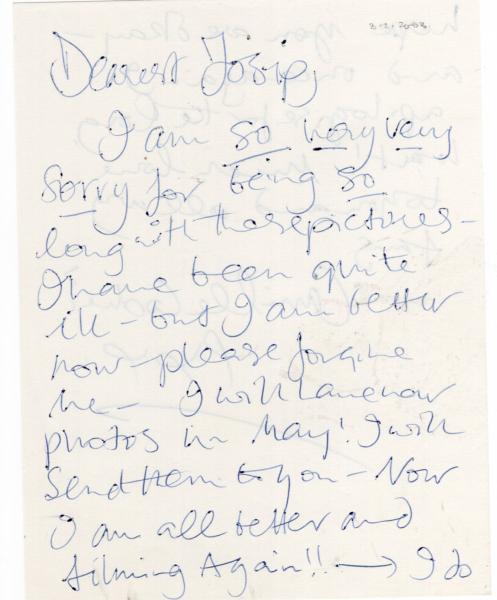 3-2-2003
Dearest Josip,
I am so very very
sorry for being so
long with these pictures -
I have been quite
ill - but I am better
now - please forgive
me - I will have new
photos in May! I will
send them to you - Now
I am all better and
filming Again!! → I do